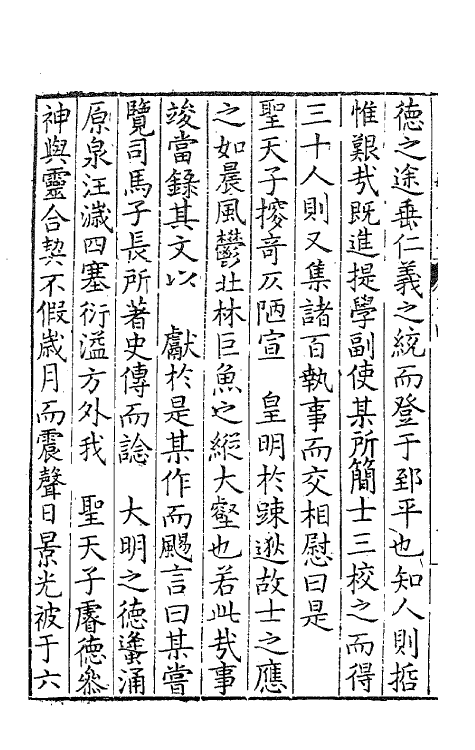 德之途垂仁義之統而登于郅平也知人則哲
惟艱㢤既進提學副使某所簡士三校之而得
三十人則又集諸百執事而交相慰曰是
聖天子搜竒仄陋宣　皇明於踈逖故士之應
之如晨風鬱北林巨魚之縱大壑也若此㢤事
竣當錄其文以　獻於是某作而颺言曰某嘗
覽司馬子長所著史傳而諗　大明之德蠭涌
原泉汪濊四塞衍溢方外我　聖天子睿德叅
神與靈合契不假歲月而震聲日景光被于六